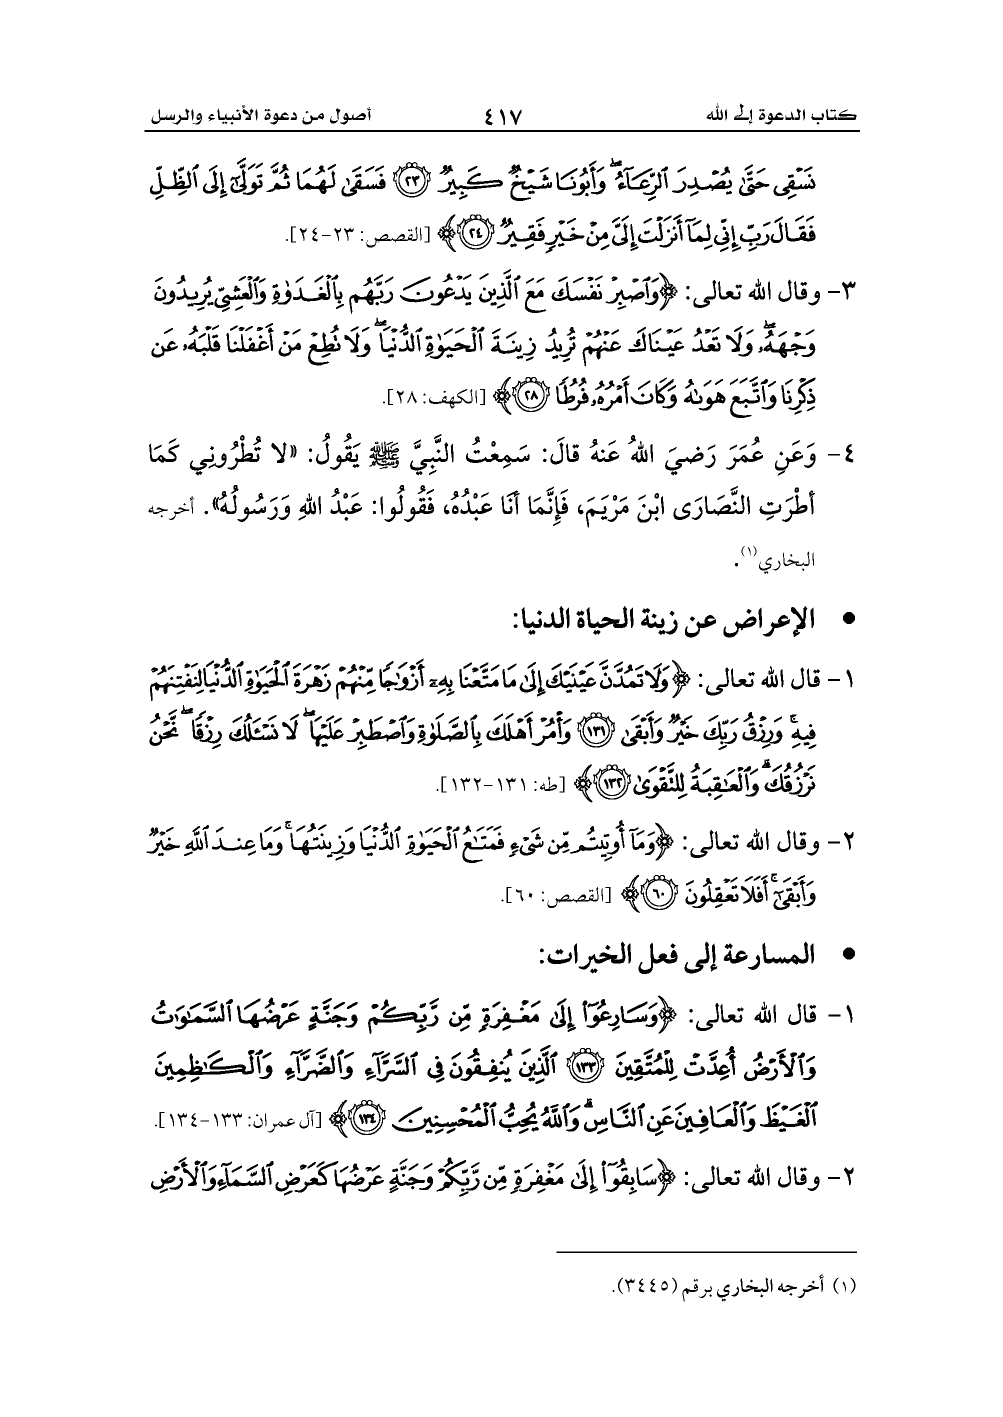 كتاب الدعوة إلى الله ٤١٧ أصول من دعوة الأنبياء والرسل
نَسْقِي حَتَّىٰ يُصْدِرَ ٱلرِّعَآءُ ۖ وَأَبُونَا شَيْخٌ كَبِيرٌ ٢٣ فَسَقَىٰ لَهُمَا ثُمَّ تَوَلَّىٰٓ إِلَى ٱلظِّلِّ
فَقَالَ رَبِّ إِنِّي لِمَآ أَنزَلْتَ إِلَىَّ مِنْ خَيْرٍ فَقِيرٌ ٢٤﴾ [القصص: ٢٣-٢٤].
٣- وقال الله تعالى: ﴿وَٱصْبِرْ نَفْسَكَ مَعَ ٱلَّذِينَ يَدْعُونَ رَبَّهُم بِٱلْغَدَوٰةِ وَٱلْعَشِىِّ يُرِيدُونَ
وَجْهَهُۥ ۖ وَلَا تَعْدُ عَيْنَاكَ عَنْهُمْ تُرِيدُ زِينَةَ ٱلْحَيَوٰةِ ٱلدُّنْيَا ۖ وَلَا تُطِعْ مَنْ أَغْفَلْنَا قَلْبَهُۥ عَن
ذِكْرِنَا وَٱتَّبَعَ هَوَىٰهُ وَكَانَ أَمْرُهُۥ فُرُطًا ٢٨﴾ [الكهف: ٢٨].
٤- وَعَنِ عُمَرَ رَضيَ اللهُ عَنهُ قالَ: سَمِعْتُ النَّبِيَّ ﷺ يَقُولُ: «لا تُطْرُونِي كَمَا
أطْرَتِ النَّصَارَى ابْنَ مَرْيَمَ، فَإِنَّمَا أنَا عَبْدُهُ، فَقُولُوا: عَبْدُ اللهِ وَرَسُولُهُ». أخرجه
البخاري(١).
• الإعراض عن زينة الحياة الدنيا:
١- قال الله تعالى: ﴿وَلَا تَمُدَّنَّ عَيْنَيْكَ إِلَىٰ مَا مَتَّعْنَا بِهِۦٓ أَزْوَٰجًا مِّنْهُمْ زَهْرَةَ ٱلْحَيَوٰةِ ٱلدُّنْيَا لِنَفْتِنَهُمْ
فِيهِ ۚ وَرِزْقُ رَبِّكَ خَيْرٌ وَأَبْقَىٰ ١٣١ وَأْمُرْ أَهْلَكَ بِٱلصَّلَوٰةِ وَٱصْطَبِرْ عَلَيْهَا ۖ لَا نَسْـَٔلُكَ رِزْقًا ۖ نَّحْنُ
نَرْزُقُكَ ۗ وَٱلْعَـٰقِبَةُ لِلتَّقْوَىٰ ١٣٢﴾ [طه: ١٣١-١٣٢].
٢- وقال الله تعالى: ﴿وَمَآ أُوتِيتُم مِّن شَىْءٍ فَمَتَـٰعُ ٱلْحَيَوٰةِ ٱلدُّنْيَا وَزِينَتُهَا ۚ وَمَا عِندَ ٱللَّهِ خَيْرٌ
وَأَبْقَىٰٓ ۚ أَفَلَا تَعْقِلُونَ ٦٠﴾ [القصص: ٦٠].
• المسارعة إلى فعل الخيرات:
١- قال الله تعالى: ﴿وَسَارِعُوٓا۟ إِلَىٰ مَغْفِرَةٍ مِّن رَّبِّكُمْ وَجَنَّةٍ عَرْضُهَا ٱلسَّمَـٰوَٰتُ
وَٱلْأَرْضُ أُعِدَّتْ لِلْمُتَّقِينَ ١٣٣ ٱلَّذِينَ يُنفِقُونَ فِى ٱلسَّرَّآءِ وَٱلضَّرَّآءِ وَٱلْكَـٰظِمِينَ
ٱلْغَيْظَ وَٱلْعَافِينَ عَنِ ٱلنَّاسِ ۗ وَٱللَّهُ يُحِبُّ ٱلْمُحْسِنِينَ ١٣٤﴾ [آل عمران: ١٣٣-١٣٤].
٢- وقال الله تعالى: ﴿سَابِقُوٓا۟ إِلَىٰ مَغْفِرَةٍ مِّن رَّبِّكُمْ وَجَنَّةٍ عَرْضُهَا كَعَرْضِ ٱلسَّمَآءِ وَٱلْأَرْضِ
(١) أخرجه البخاري برقم (٣٤٤٥).